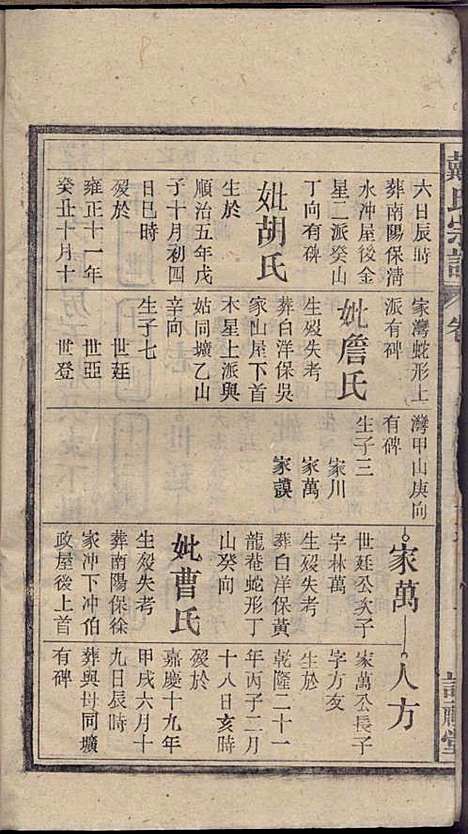 戴氏宗譜
卷
六日辰時
葬南陽保淸
水沖屋後金
星二派癸山
丁向有碑
妣胡氏
生於
順治五年戊
子十月初四
日巳時
歿於
雍正十一年
癸丑十月十
家灣蛇形上
派有碑
妣詹氏
生歿失考
葬白洋保吳
家山屋下首
木星上派與
姑同壙乙山
辛向
生子七
世廷
世亞
世登
灣甲山庚向
有碑
生子三
家川
家萬
家謨
家萬
世廷公次子
字林萬
生歿失考
葬白洋保黃
龍菴蛇形丁
山癸向
妣曹氏
生歿失考
葬南陽保徐
家沖下冲伯
政屋後上首
人方
家萬公長子
字方友
生於
乾隆二十一
年丙子二月
十八日亥時
歿於
嘉慶十九年
甲戌六月十
九日辰時
葬與母同壙
有碑